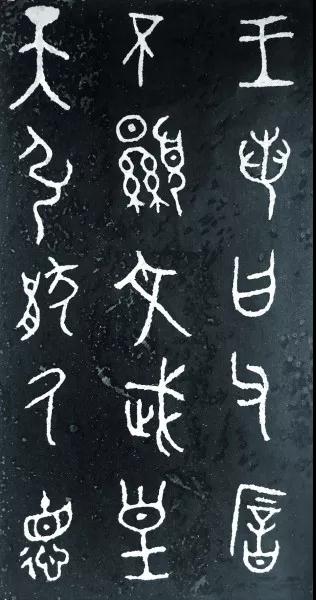 王若曰父㕂
不顯文武皇
天引猒氒德